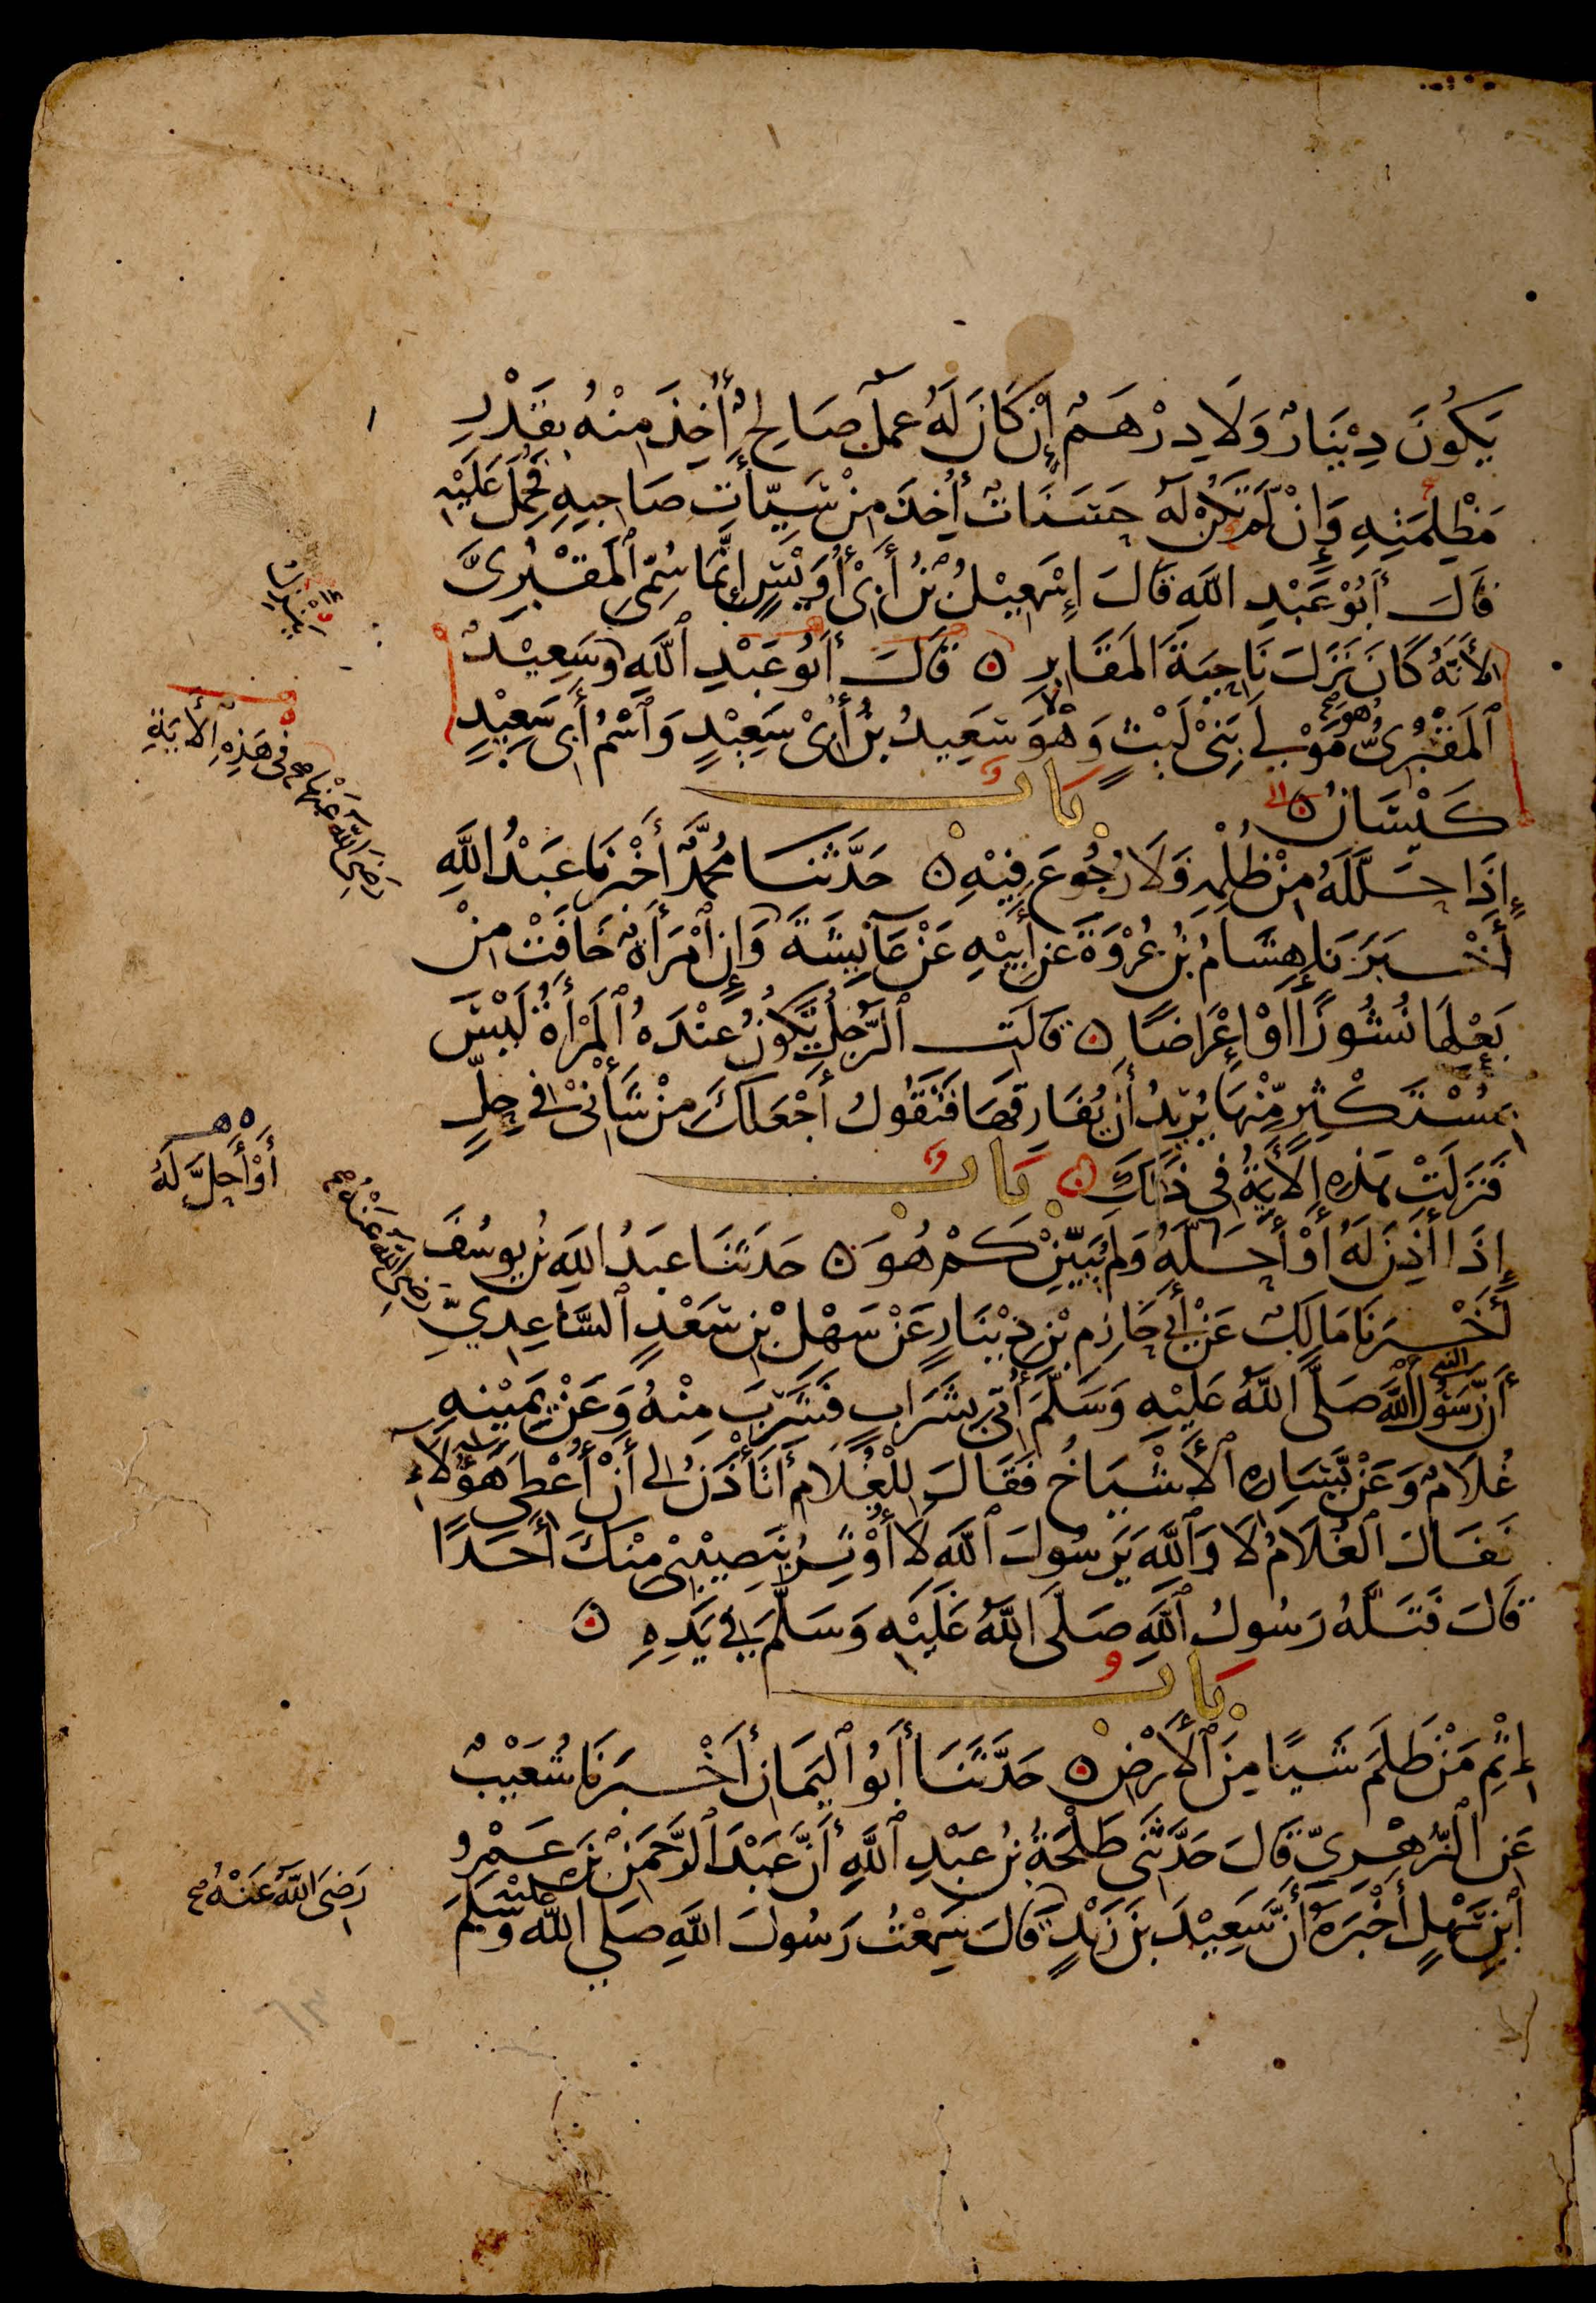 يَكُونَ دِيْنَارٌ وَلَا دِرْهَمٌ إِنْ كَانَ لَهُ عَمَلٌ صَالِحٌ أُخِذَ مِنْهُ بِقَدْرِ
مَظْلِمَتِهِ وَإِنْ لَمْ تَكُنْ لَهُ حَسَنَاتٌ أُخِذَ مِنْ سَيِّأَتِ صَاحِبِهِ فَحُمِلَ عَلَيْهِ
قَالَ أَبُوْ عَبْدِ اللَّهِ قَالَ إِسْمَعِيْلُ بْنُ أَبِيْ أُوَيْسٍ إِنَّمَا سُمِّيَ ٱلْمَقْبُرِيَّ
لِأَنَّهُ كَانَ نَزَلَ نَاحِيَةَ الْمَقَابِرِ ۝ قَالَ أَبُو عَبْدِ ٱللَّهِ وَسَعِيْدٌ
ٱلْمَقْبُرِىُّ هُوَ مَوْلَى بَنِيْ لَيْثٍ وَهُوَ سَعِيدُ بْنُ أَبِيْ سَعِيْدٍ وَٱسْمُ أَبِي سَعِيْدٍ
كَيْسَانُ ۝ بَابٌ
إِذَا حَلَّلَهُ مِنْ ظُلْمِهِ فَلَا رُجُوعَ فِيْهِ ۝ حَدَّثَنَا مُحَمَّدٌ أَخْبَرَنَا عَبْدُ اللَّهِ
أَخْبَرَنَا هِشَامُ بْنُ عُرْوَةَ عَنْ أَبِيْهِ عَنْ عَائِشَةَ وَإِنِ ٱمْرَأَةٌ خَافَتْ مِنْ
بَعْلِهَا نُشُوزًا أَوْ إِعْرَاضًا ۝ قَالَتِ ٱلرَّجُلُ يَكُونُ عِنْدَهُ ٱلْمَرْأَةُ لَيْسَ
بِمُسْتَكْثِرٍ مِّنْهَا يُرِيْدُ أَنْ يُفَارِقَهَا فَتَقُولُ أَجْعَلُكَ مِنْ شَأْنِيْ فِي حِلٍّ
فَنَزَلَتْ هَذِهِ الْأَيَةُ فِي ذَلِكَ ۝ بَابٌ
إِذَا أَذِنَ لَهُ أَوْ أَحَلَّهُ وَلَمْ يُبَيِّنْ كَمْ هُوَ ۝ حَدَّثَنَا عَبْدُ اللَّهِ بْنُ يُوسُفَ
أَخْبَرَنَا مَالِكٌ عَنْ أَبِي حَازِمِ بْنِ دِيْنَارٍ عَنْ سَهْلِ بْنِ سَعْدٍ ٱلسَّاعِدِيِّ
أَنَّ رَسُولَ ٱللَّهِ صَلَّى اللَّهُ عَلَيْهِ وَسَلَّمَ أُتِيَ بِشَرَابٍ فَشَرِبَ مِنْهُ وَعَنْ يَمِيْنِهِ
غُلَامٌ وَعَنْ يَّسَارِهِ ٱلْأَشْيَاخُ فَقَالَ لِلْغُلَامِ أَتَأْذَنُ لِي أَنْ أُعْطِيَ هَؤُلَاءِ
فَقَالَ ٱلْغُلَامُ لَا وَٱللَّهِ يَرَسُولَ ٱللَّهِ لَا أُوْثِرُ بِنَصِيْبِيْ مِنْكَ أَحَدًا
قَالَ فَتَلَّهُ رَسُولُ ٱللَّهِ صَلَّى اللَّهُ عَلَيْهِ وَسَلَّمَ فِي يَدِهِ ۝
بَابُ
إِثْمِ مَنْ ظَلَمَ شَيْئًا مِنَ ٱلْأَرْضِ ۝ حَدَّثَنَا أَبُو الْيَمَانِ أَخْبَرَنَا شُعَيْبٌ
عَنِ ٱلزُّهْرِيِّ قَالَ حَدَّثَنِي طَلْحَةُ بْنُ عَبْدِ ٱللَّهِ أَنَّ عَبْدَ ٱلرَّحْمَنِ بْنَ عَمْرِو
ٱبْنِ سَهْلٍ أَخْبَرَهُ أَنَّ سَعِيْدَ بْنَ زَيْدٍ قَالَ سَمِعْتُ رَسُولَ اللَّهِ صَلَى اللَّهُ عَلَيْهِ وَسَلَّمَ
رَضِيَ اللَّهُ عَنْهَا صح فِي هَذِهِ الْأَيَةِ
أَوْ أَحَلَّ لَهُ
رَضِيَ اللَّهُ عَنْهُ صح
النبي
رَضِيَ اللَّهُ عَنْهُ صح